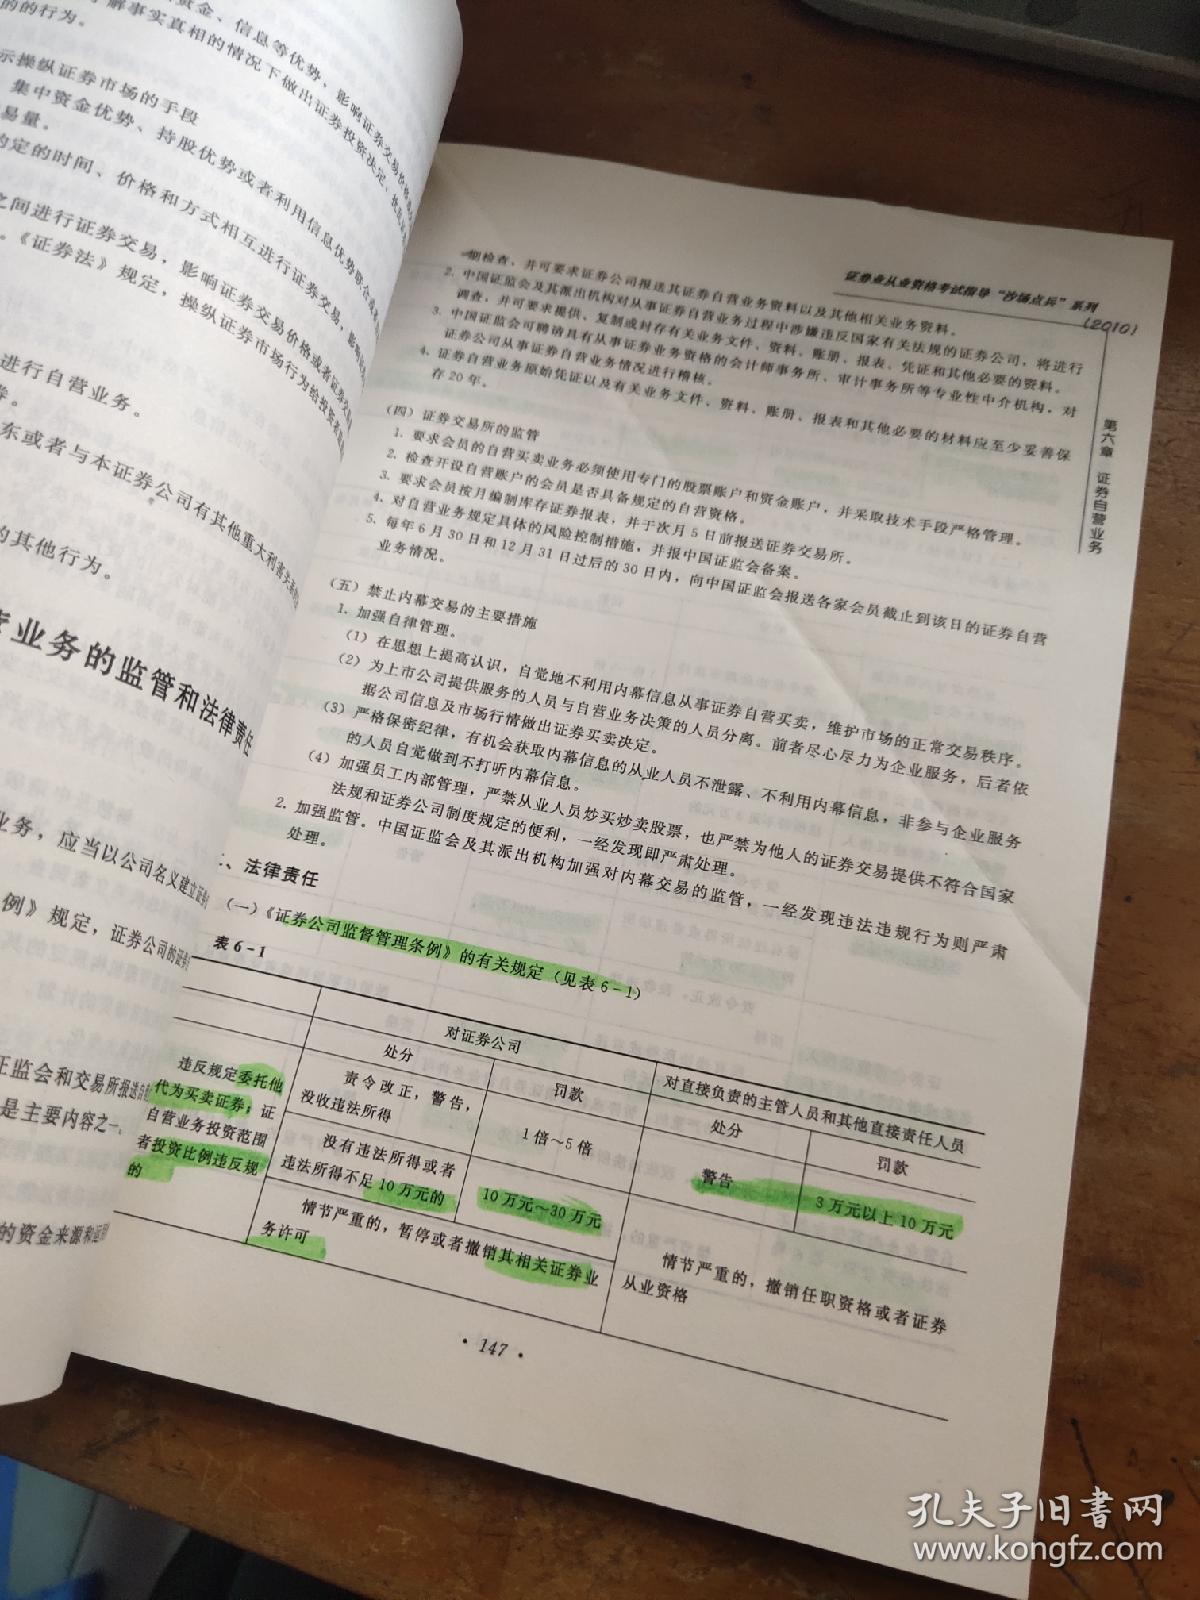 资金、信息等优势，影响证券交易价格
了解事实真相的情况下做出证券投资决定，
的的行为。
示操纵证券市场的手段
集中资金优势、持股优势或者利用信息优势联合或
易量。
约定的时间、价格和方式相互进行证券交易，影响
之间进行证券交易，影响证券交易价格或者证券交易
。《证券法》规定，操纵证券市场行为给投资者造
进行自营业务。
券。
东或者与本证券公司有其他重大利害关系
的其他行为。
业务的监管和法律责任
业务，应当以公司名义建立证券
例》规定，证券公司的证券
正监会和交易所报送自
是主要内容之一。
的资金来源和运用
证券业从业资格考试指导“沙场点兵”系列
(2010)
第六章 证券自营业务
期检查，并可要求证券公司报送其证券自营业务资料以及其他相关业务资料。
2. 中国证监会及其派出机构对从事证券自营业务过程中涉嫌违反国家有关法规的证券公司，将进行
调查，并可要求提供、复制或封存有关业务文件、资料、账册、报表、凭证和其他必要的资料。
3. 中国证监会可聘请具有从事证券业务资格的会计师事务所、审计事务所等专业性中介机构，对
证券公司从事证券自营业务情况进行稽核。
4. 证券自营业务原始凭证以及有关业务文件、资料、账册、报表和其他必要的材料应至少妥善保
存20年。
（四）证券交易所的监管
1. 要求会员的自营买卖业务必须使用专门的股票账户和资金账户，并采取技术手段严格管理。
2. 检查开设自营账户的会员是否具备规定的自营资格。
3. 要求会员按月编制库存证券报表，并于次月5日前报送证券交易所。
4. 对自营业务规定具体的风险控制措施，并报中国证监会备案。
5. 每年6月30日和12月31日过后的30日内，向中国证监会报送各家会员截止到该日的证券自营
业务情况。
（五）禁止内幕交易的主要措施
1. 加强自律管理。
（1）在思想上提高认识，自觉地不利用内幕信息从事证券自营买卖，维护市场的正常交易秩序。
（2）为上市公司提供服务的人员与自营业务决策的人员分离。前者尽心尽力为企业服务，后者依
据公司信息及市场行情做出证券买卖决定。
（3）严格保密纪律，有机会获取内幕信息的从业人员不泄露、不利用内幕信息，非参与企业服务
的人员自觉做到不打听内幕信息。
（4）加强员工内部管理，严禁从业人员炒买炒卖股票，也严禁为他人的证券交易提供不符合国家
法规和证券公司制度规定的便利，一经发现即严肃处理。
2. 加强监管。中国证监会及其派出机构加强对内幕交易的监管，一经发现违法违规行为则严肃
处理。
二、法律责任
（一）《证券公司监督管理条例》的有关规定（见表6-1）
表6-1
对证券公司
对直接负责的主管人员和其他直接责任人员
处分
罚款
处分
罚款
违反规定委托他
代为买卖证券；证
自营业务投资范围
者投资比例违反规
的
责令改正，警告，
没收违法所得
1倍～5倍
没有违法所得或者
违法所得不足10万元的
10万元～30万元
警告
3万元以上10万元
情节严重的，暂停或者撤销其相关证券业
务许可
情节严重的，撤销任职资格或者证券
从业资格
· 147 ·
孔夫子旧书网
www.kongfz.com